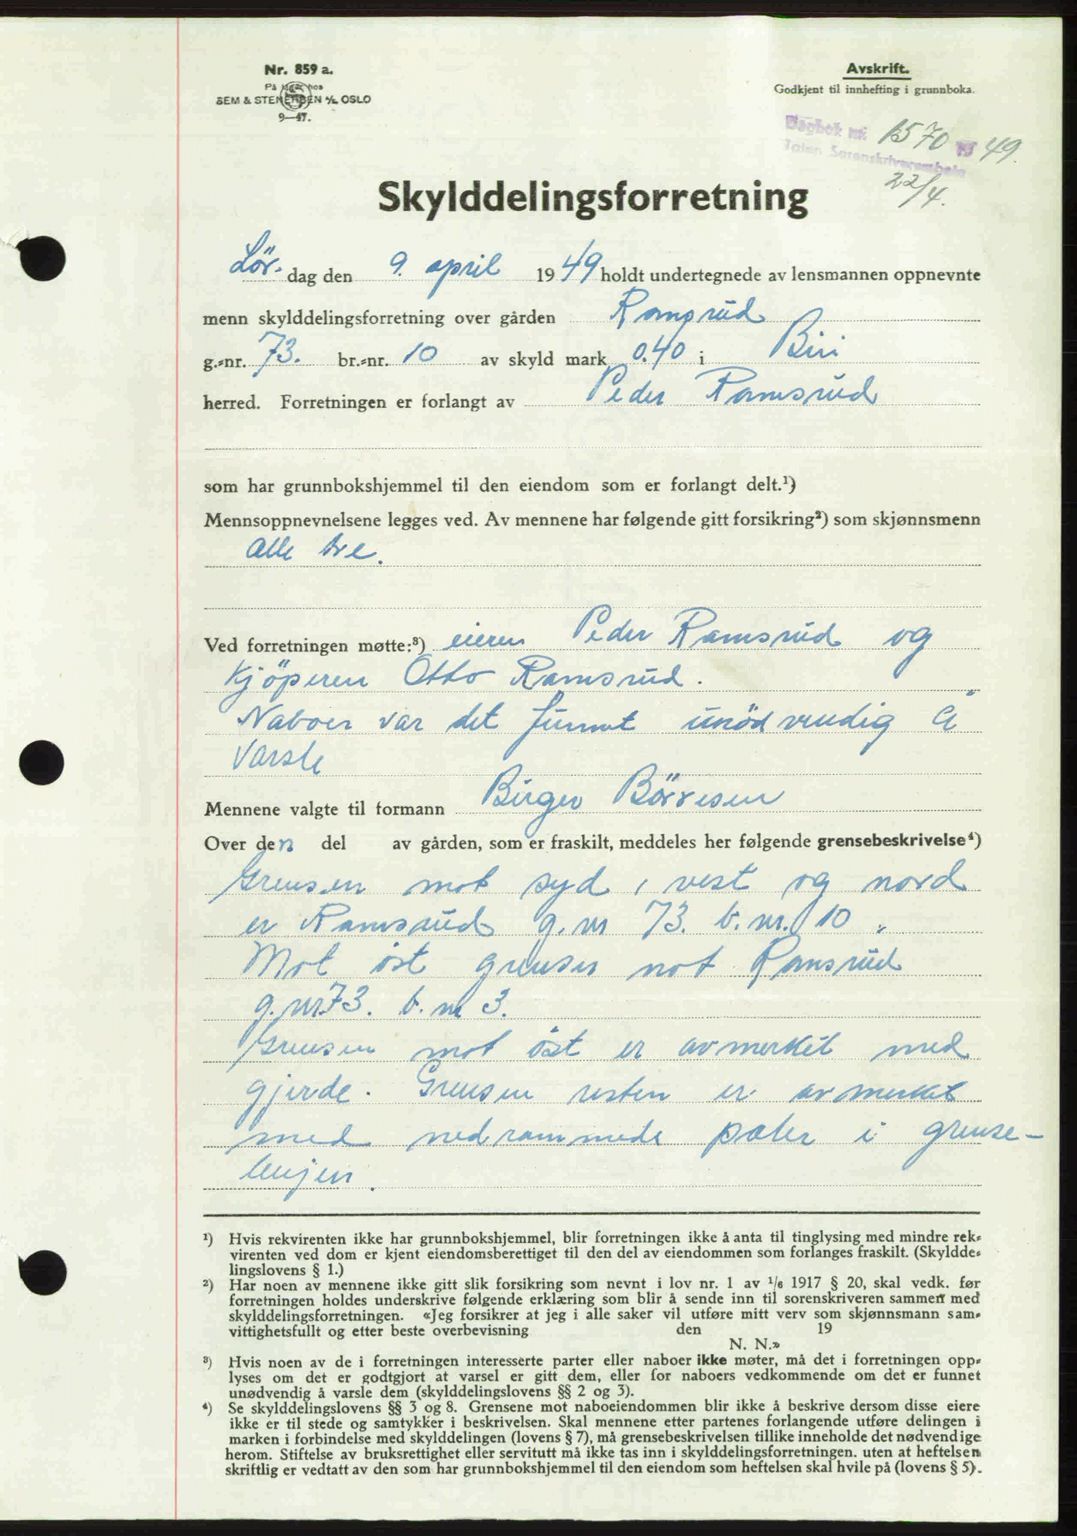 Nr. 859 a.
På lager hos
SEM & STENERSEN A/S OSLO
9—47.
Avskrift.
Godkjent til innhefting i grunnboka.
Dagbok nr. 1570 19 49.
Toten Sorenskriverembete
22/4.
Skylddelingsforretning
Lör. dag den 9. april 1949 holdt undertegnede av lensmannen oppnevnte
menn skylddelingsforretning over gården Ramsrud
g.-nr. 73. br.-nr. 10 av skyld mark 0.40 i Biri
herred. Forretningen er forlangt av Peder Ramsrud
som har grunnbokshjemmel til den eiendom som er forlangt delt.¹)
Mennsoppnevnelsene legges ved. Av mennene har følgende gitt forsikring²) som skjønnsmenn
alle tre.
Ved forretningen møtte:³) eieren Peder Ramsrud og
kjöperen Otto Ramsrud.
Naboer var det funnet unödvendig å
varsle
Mennene valgte til formann Birger Börresen
Over den del av gården, som er fraskilt, meddeles her følgende grensebeskrivelse⁴)
Grensen mot syd, vest og nord
er Ramsrud g.nr 73. b.nr. 10.
Mot öst grenser mot Ramsrud
g.nr 73. b.nr 3.
Grensen mot öst er avmerket med
gjerde. Grensen resten er avmerket
med nedrammede pæler i grense-
linjen.
¹) Hvis rekvirenten ikke har grunnbokshjemmel, blir forretningen ikke å anta til tinglysing med mindre rek-
virenten ved dom er kjent eiendomsberettiget til den del av eiendommen som forlanges fraskilt. (Skyldde-
lingslovens § 1.)
²) Har noen av mennene ikke gitt slik forsikring som nevnt i lov nr. 1 av 1/6 1917 § 20, skal vedk. før
forretningen holdes underskrive følgende erklæring som blir å sende inn til sorenskriveren sammen med
skylddelingsforretningen. «Jeg forsikrer at jeg i alle saker vil utføre mitt verv som skjønnsmann sam-
vittighetsfullt og etter beste overbevisning den 19
N. N.»
³) Hvis noen av de i forretningen interesserte parter eller naboer ikke møter, må det i forretningen opp-
lyses om det er godtgjort at varsel er gitt dem, eller for naboers vedkommende om det er funnet
unødvendig å varsle dem (skylddelingslovens §§ 2 og 3).
⁴) Se skylddelingslovens §§ 3 og 8. Grensene mot naboeiendommen blir ikke å beskrive dersom disse eiere
ikke er til stede og samtykker i beskrivelsen. Skal mennene etter partenes forlangende utføre delingen i
marken i forbindelse med skylddelingen (lovens § 7), må grensebeskrivelsen tillike inneholde det nødvendige
herom. Stiftelse av bruksrettighet eller servitutt må ikke tas inn i skylddelingsforretningen. uten at heftelsen
skriftlig er vedtatt av den som har grunnbokshjemmel til den eiendom som heftelsen skal hvile på (lovens § 5).